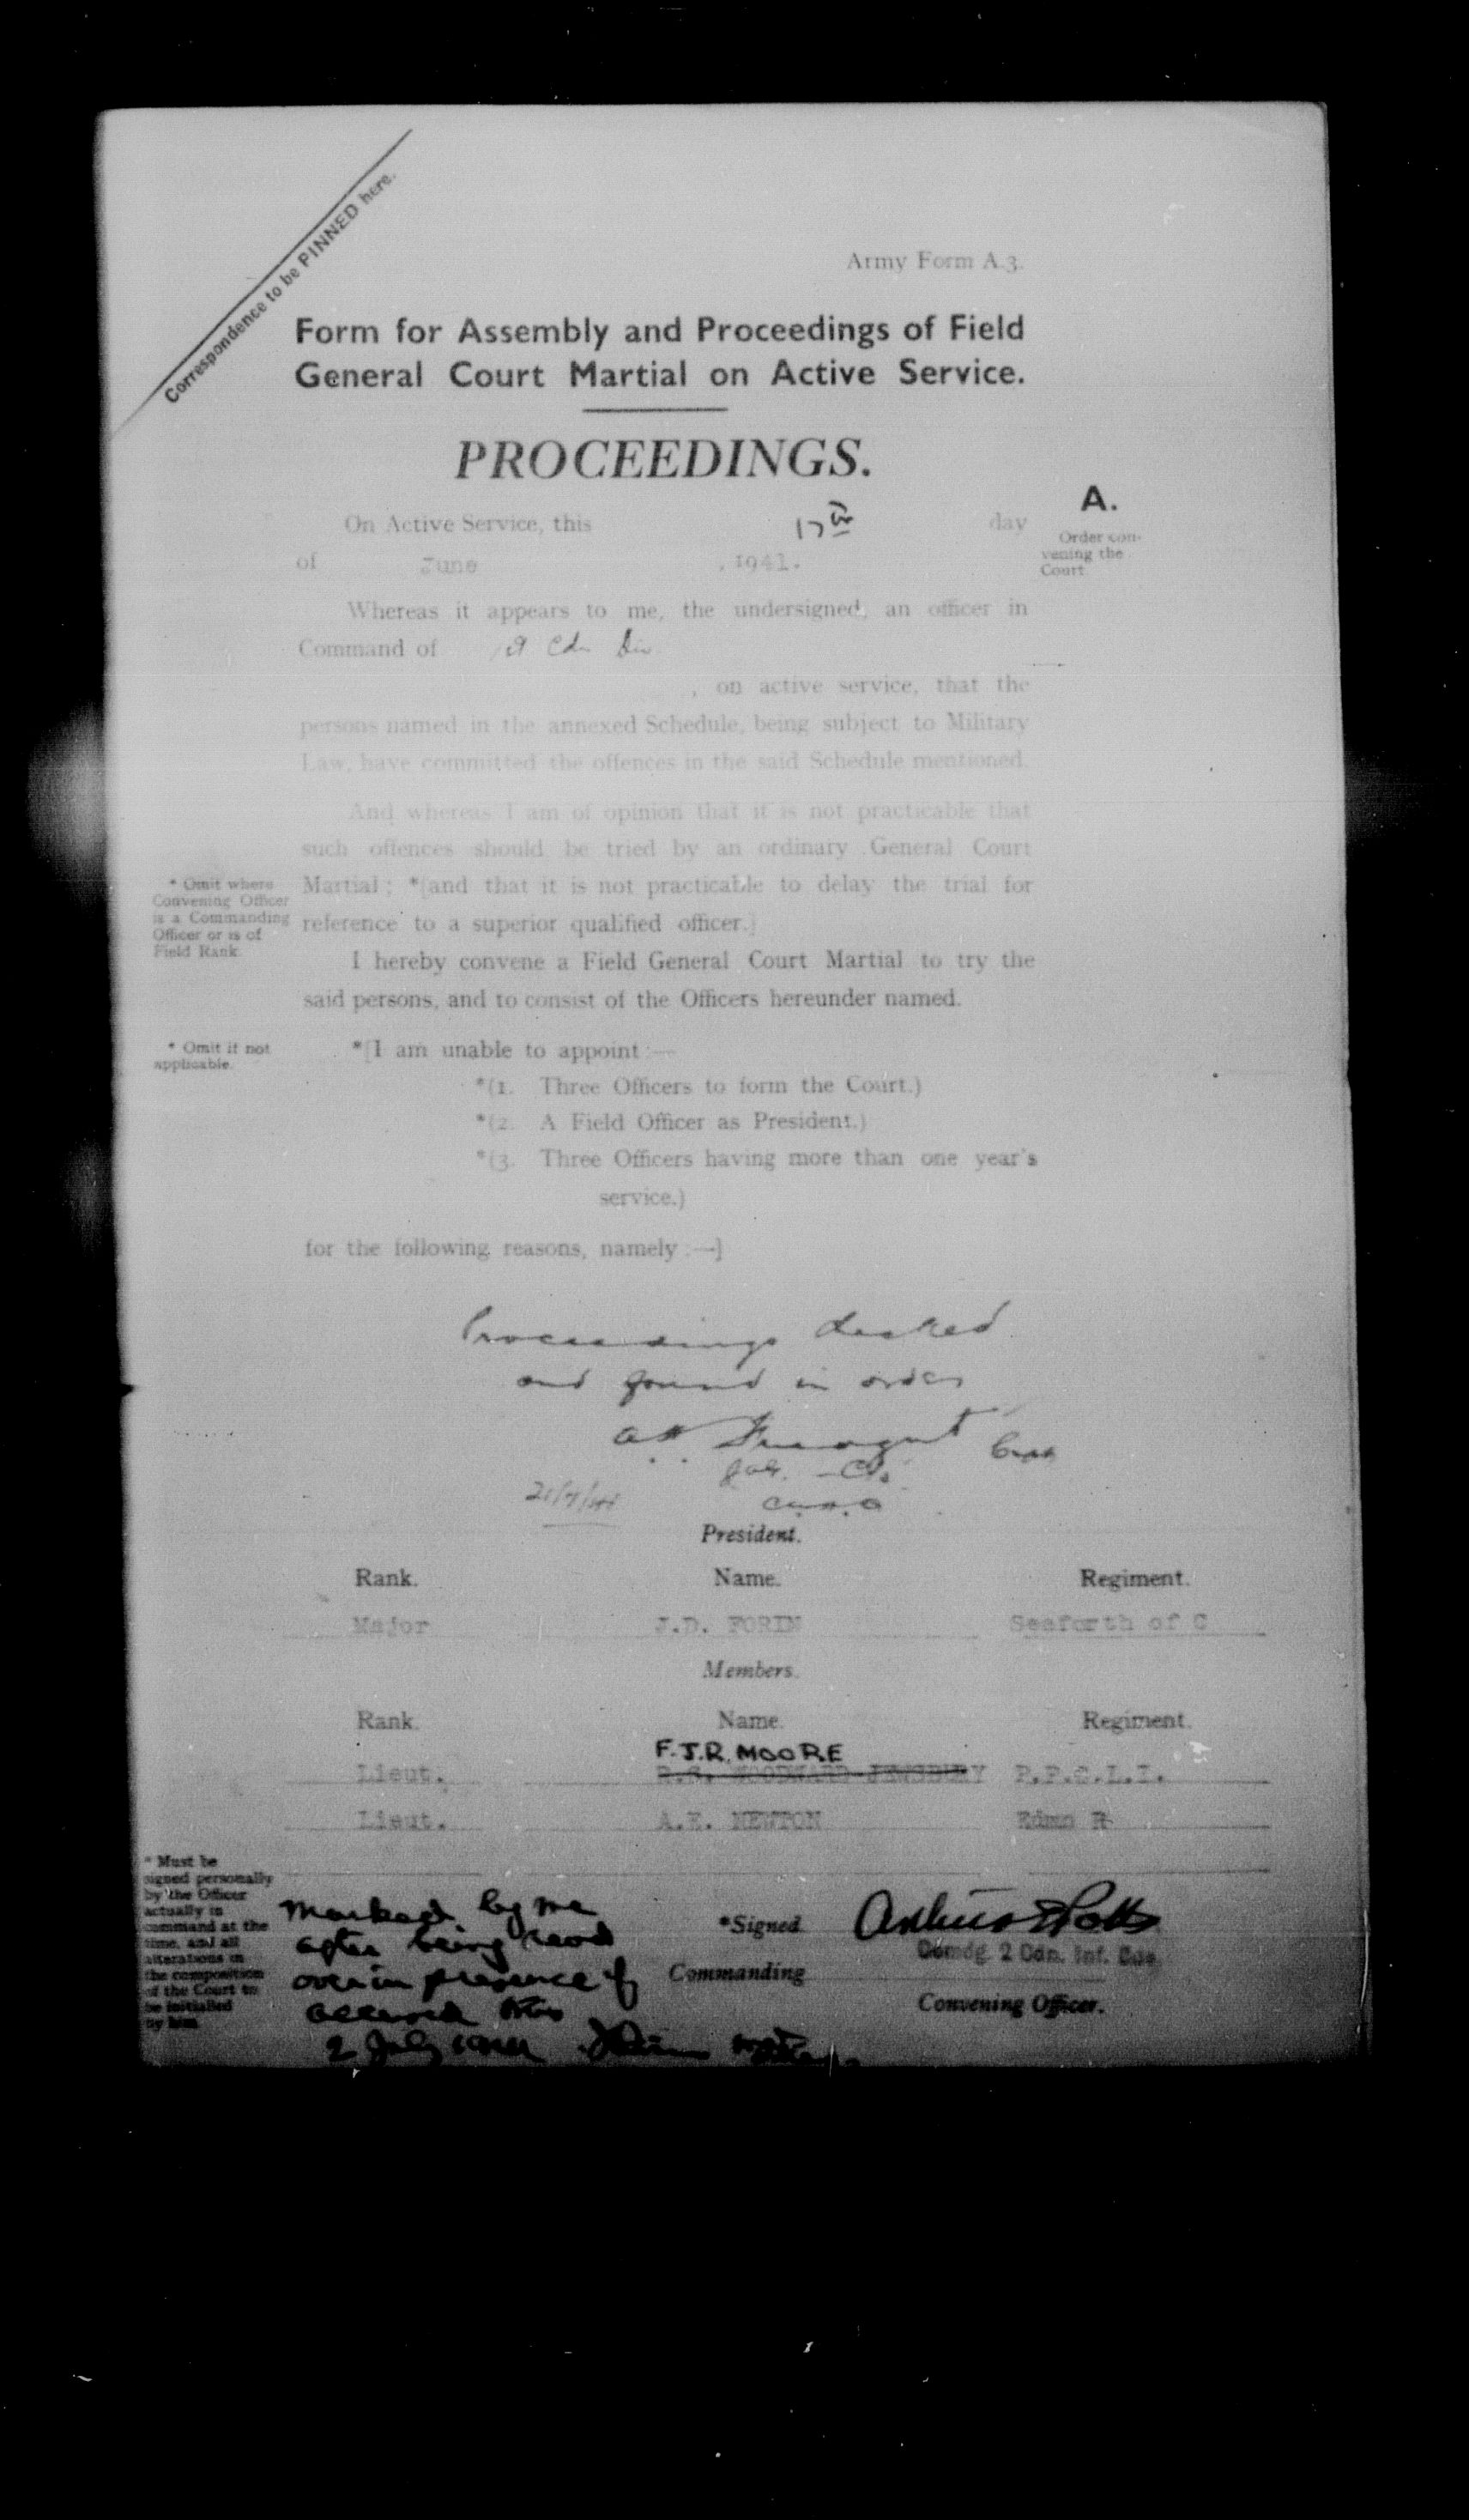 Correspondence to be PINNED here.
Army Form A.3.
Form for Assembly and Proceedings of Field
General Court Martial on Active Service.
PROCEEDINGS.
A.
On Active Service, this 17th day
Order con-
vening the
Court
of June , 1941.
Whereas it appears to me, the undersigned, an officer in
Command of Cdn Div
, on active service, that the
persons named in the annexed Schedule, being subject to Military
Law, have committed the offences in the said Schedule mentioned.
And whereas I am of opinion that it is not practicable that
such offences should be tried by an ordinary General Court
Martial ; *[and that it is not practicable to delay the trial for
reference to a superior qualified officer.]
* Omit where
Convening Officer
is a Commanding
Officer or is of
Field Rank
I hereby convene a Field General Court Martial to try the
said persons, and to consist of the Officers hereunder named.
* Omit if not
applicable.
*[I am unable to appoint :—
*(1. Three Officers to form the Court.)
*(2. A Field Officer as President.)
*(3. Three Officers having more than one year's
service.)
for the following reasons, namely :—]
Proceedings checked
and found in order
President.
Rank. Name. Regiment.
Major J.D. FORIN Seaforth of C
Members.
Rank. Name. Regiment.
F.J.R. MOORE
Lieut. WOODWARD P.P.C.L.I.
Lieut. A.E. NEWTON Edmn R
* Must be
signed personally
by the Officer
actually in
command at the
time, and all
alterations in
the composition
of the Court to
be initialled
by him
Marked by me
after being read
over in presence of
accused this
2 July 1941
*Signed
Commanding Comdg. 2 Cdn. Inf. Bde
Convening Officer.